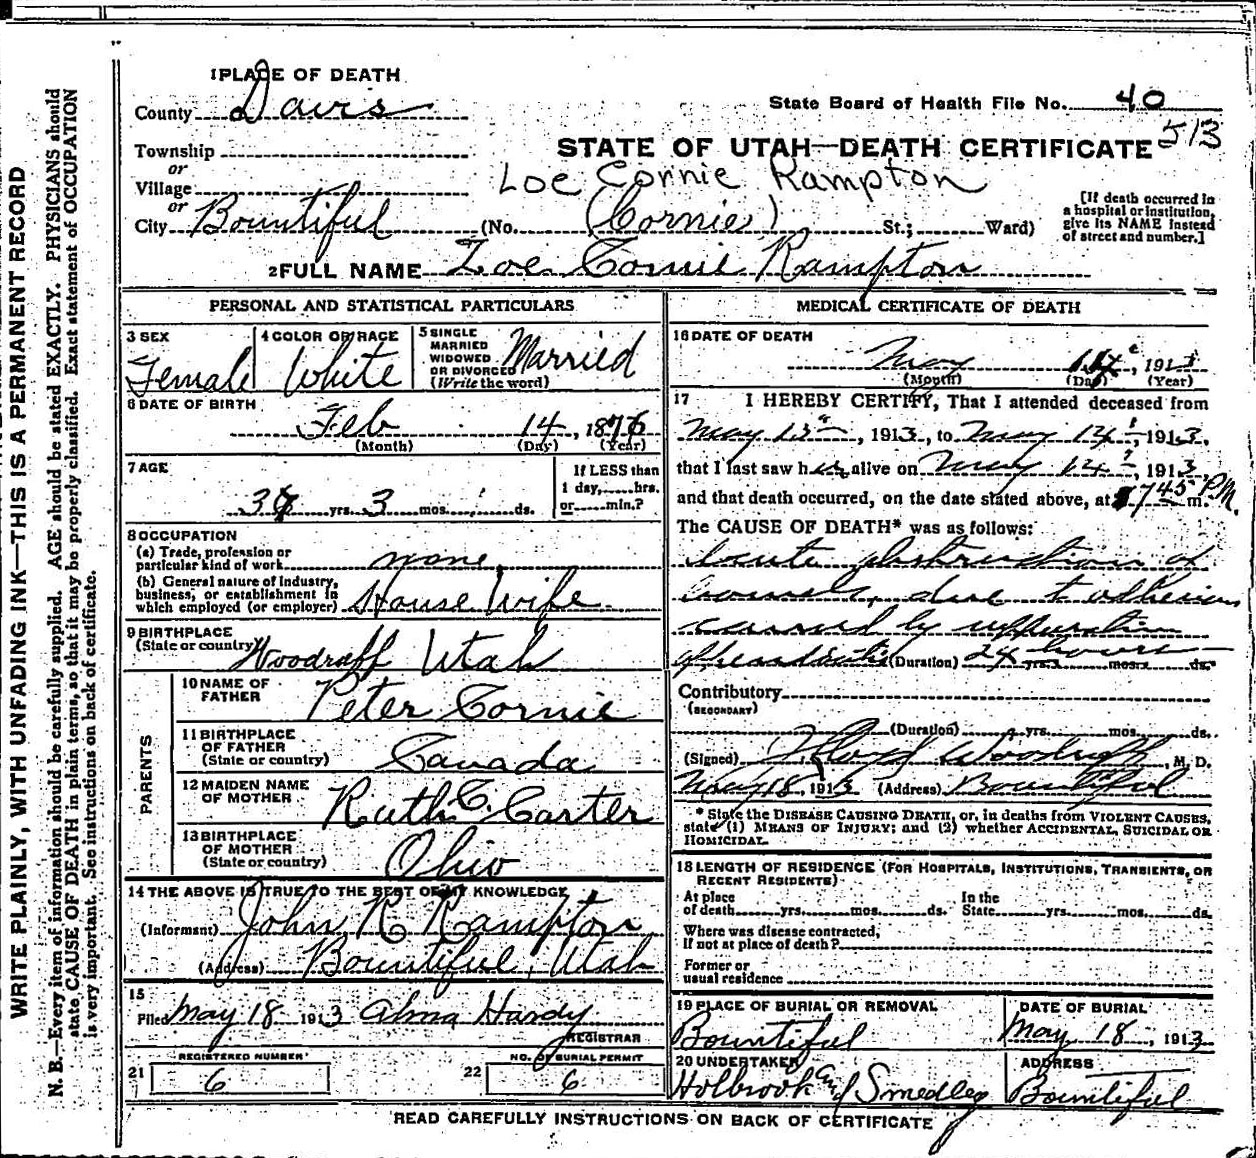 WRITE PLAINLY, WITH UNFADING INK—THIS IS A PERMANENT RECORD
N. B.—Every item of information should be carefully supplied. AGE should be stated EXACTLY. PHYSICIANS should
state CAUSE OF DEATH in plain terms, so that it may be properly classified. Exact statement of OCCUPATION
is very important. See instructions on back of certificate.
1 PLACE OF DEATH
County Davis
State Board of Health File No. 40
513
Township
STATE OF UTAH—DEATH CERTIFICATE
or
Village
Loe Cornie Rampton
or
City Bountiful (No. (Cornie) St.; Ward)
[If death occurred in
a hospital or institution,
give its NAME instead
of street and number.]
2 FULL NAME Loe Cornie Rampton
PERSONAL AND STATISTICAL PARTICULARS
3 SEX
Female
4 COLOR OR RACE
White
5 SINGLE
MARRIED
WIDOWED
OR DIVORCED
(Write the word)
Married
6 DATE OF BIRTH
Feb 14, 1876
(Month) (Day) (Year)
7 AGE
yrs. 3 mos. ds.
If LESS than
1 day, hrs.
or min.?
8 OCCUPATION
(a) Trade, profession or
particular kind of work none
(b) General nature of Industry,
business, or establishment in
which employed (or employer) House Wife
9 BIRTHPLACE
(State or country) Woodruff Utah
PARENTS
10 NAME OF
FATHER Peter Cornie
11 BIRTHPLACE
OF FATHER
(State or country) Canada
12 MAIDEN NAME
OF MOTHER Ruth C. Carter
13 BIRTHPLACE
OF MOTHER
(State or country) Ohio
14 THE ABOVE IS TRUE TO THE BEST OF MY KNOWLEDGE
(Informant) John R Rampton
(Address) Bountiful, Utah
15
Filed May 18 1913 Alma Hardy
REGISTRAR
REGISTERED NUMBER
21 6
NO. OF BURIAL PERMIT
22 6
MEDICAL CERTIFICATE OF DEATH
16 DATE OF DEATH
May 14, 1913
(Month) (Day) (Year)
17 I HEREBY CERTIFY, That I attended deceased from
May 13, 1913, to May 14, 1913,
that I last saw her alive on May 14, 1913,
and that death occurred, on the date stated above, at 7 45 P.M. m.
The CAUSE OF DEATH* was as follows:
Acute obstruction of
bowels, due to adhesions
caused by suppuration
appendicitis (Duration) 24 hours yrs. mos. ds.
Contributory
(SECONDARY)
(Duration) yrs. mos. ds.
(Signed) Woodruff, M. D.
May 18, 1913 (Address) Bountiful
* State the DISEASE CAUSING DEATH, or, in deaths from VIOLENT CAUSES,
state (1) MEANS OF INJURY; and (2) whether ACCIDENTAL, SUICIDAL OR
HOMICIDAL.
18 LENGTH OF RESIDENCE (FOR HOSPITALS, INSTITUTIONS, TRANSIENTS, OR
RECENT RESIDENTS)
At place
of death yrs. mos. ds.
In the
State yrs. mos. ds.
Where was disease contracted,
If not at place of death?
Former or
usual residence
19 PLACE OF BURIAL OR REMOVAL
Bountiful
DATE OF BURIAL
May 18, 1913
20 UNDERTAKER
Holbrook and Smedley
ADDRESS
Bountiful
READ CAREFULLY INSTRUCTIONS ON BACK OF CERTIFICATE